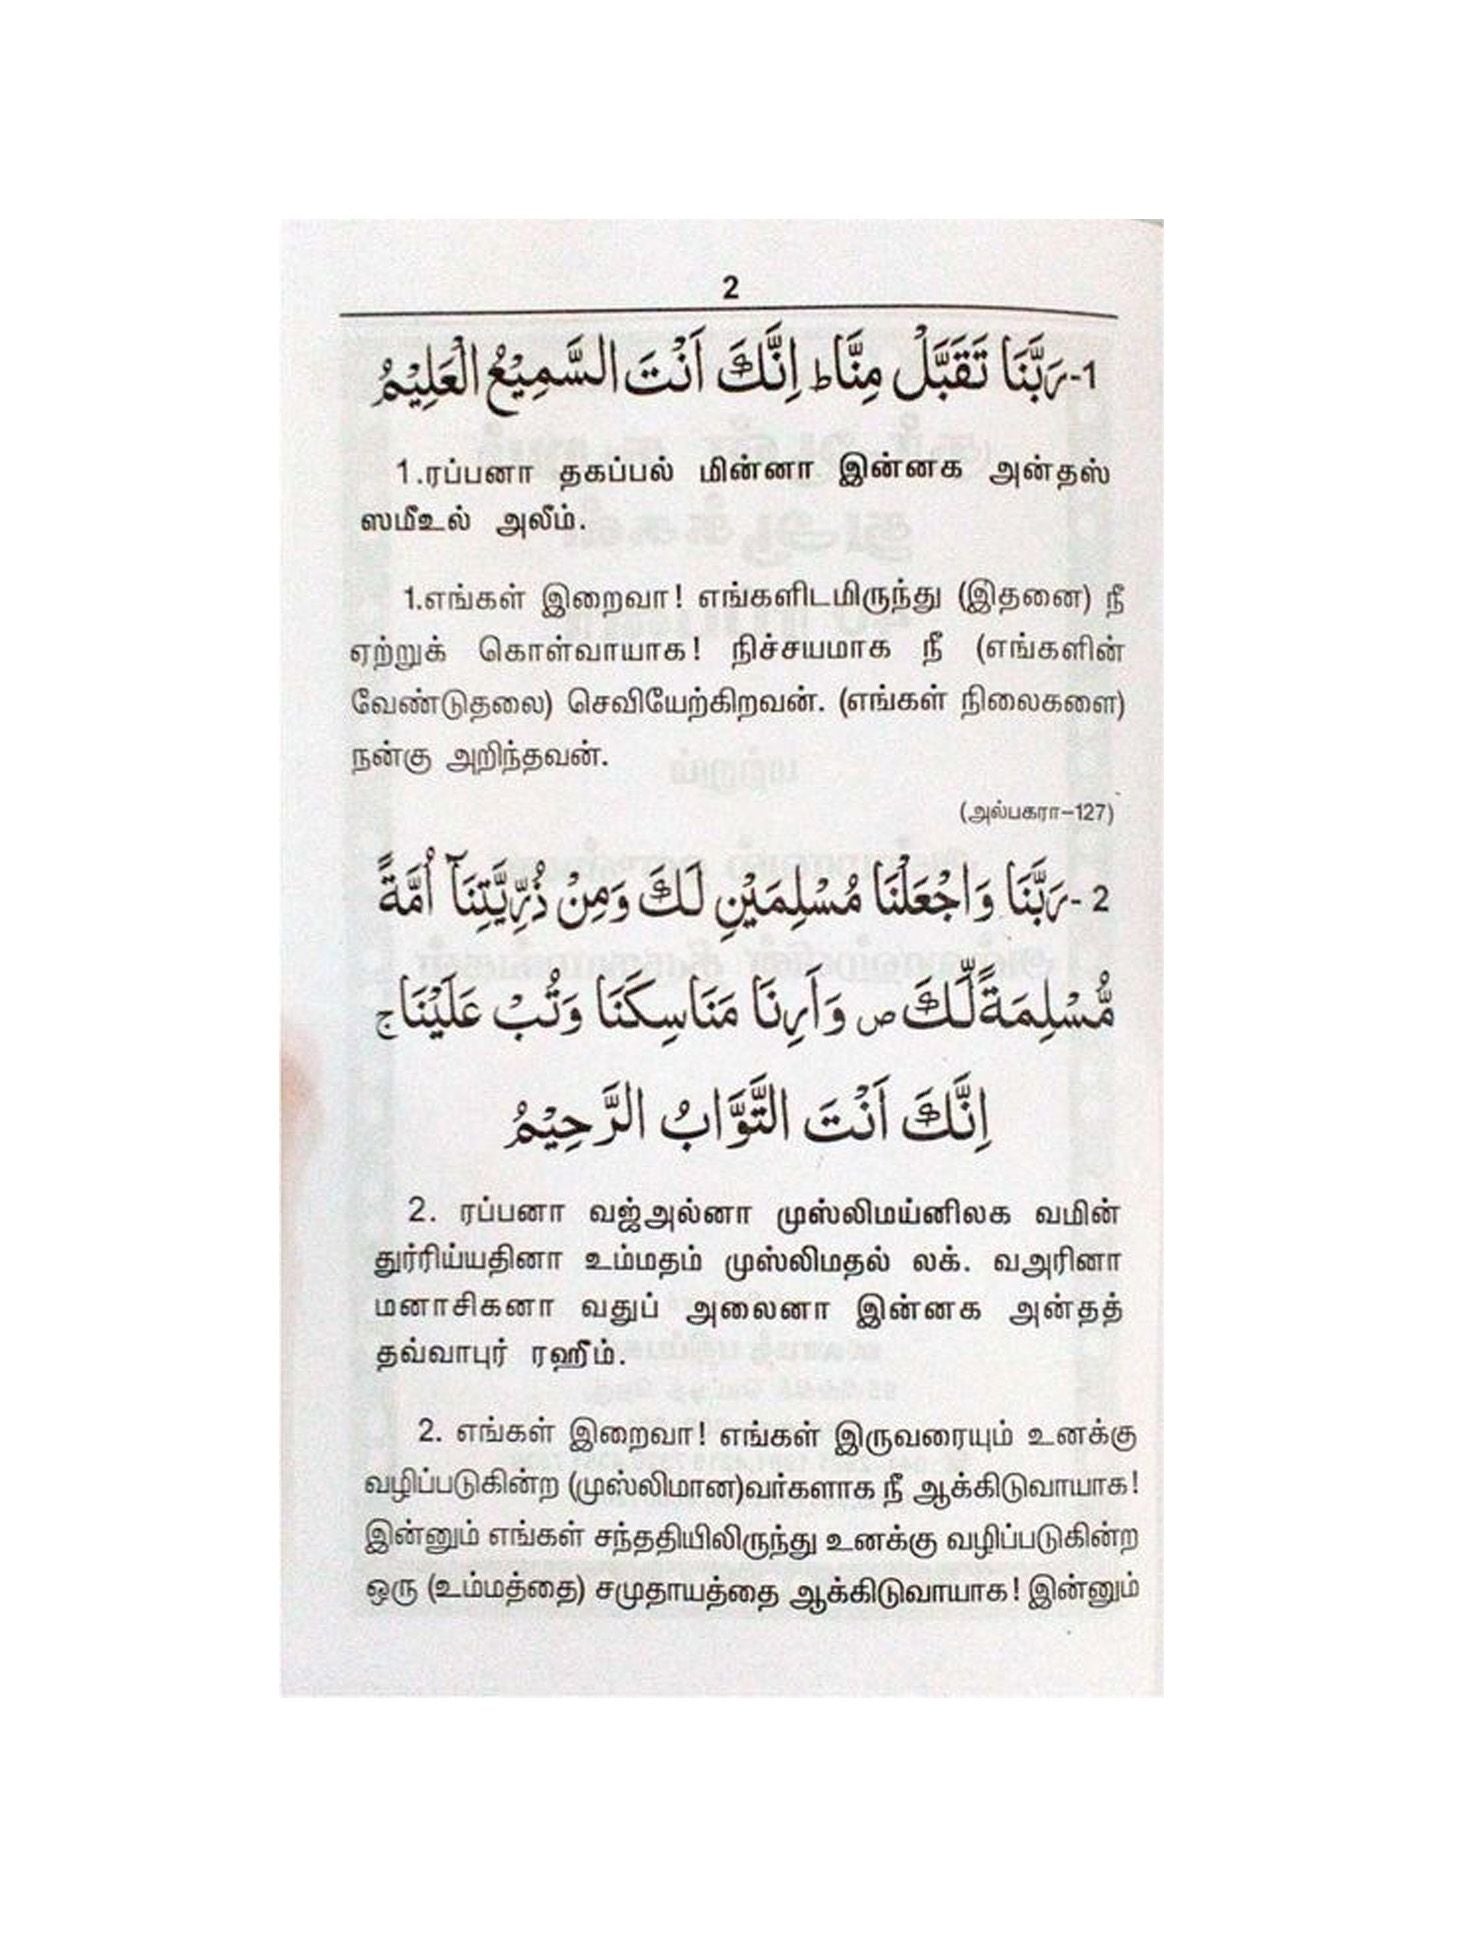 2
1- رَبَّنَا تَقَبَّلْ مِنَّا ؕ اِنَّكَ اَنْتَ السَّمِيْعُ الْعَلِيْمُ
1.ரப்பனா தகப்பல் மின்னா இன்னக அன்தஸ்
ஸமீஉல் அலீம்.
1.எங்கள் இறைவா! எங்களிடமிருந்து (இதனை) நீ
ஏற்றுக் கொள்வாயாக! நிச்சயமாக நீ (எங்களின்
வேண்டுதலை) செவியேற்கிறவன். (எங்கள் நிலைகளை)
நன்கு அறிந்தவன்.
(அல்பகரா–127)
2- رَبَّنَا وَاجْعَلْنَا مُسْلِمَيْنِ لَكَ وَمِنْ ذُرِّيَّتِنَآ اُمَّةً
مُّسْلِمَةً لَّكَ ص وَاَرِنَا مَنَاسِكَنَا وَتُبْ عَلَيْنَا ج
اِنَّكَ اَنْتَ التَّوَّابُ الرَّحِيْمُ
2. ரப்பனா வஜ்அல்னா முஸ்லிமய்னிலக வமின்
துர்ரிய்யதினா உம்மதம் முஸ்லிமதல் லக். வஅரினா
மனாசிகனா வதுப் அலைனா இன்னக அன்தத்
தவ்வாபுர் ரஹீம்.
2. எங்கள் இறைவா! எங்கள் இருவரையும் உனக்கு
வழிப்படுகின்ற (முஸ்லிமான)வர்களாக நீ ஆக்கிடுவாயாக!
இன்னும் எங்கள் சந்ததியிலிருந்து உனக்கு வழிப்படுகின்ற
ஒரு (உம்மத்தை) சமுதாயத்தை ஆக்கிடுவாயாக! இன்னும்